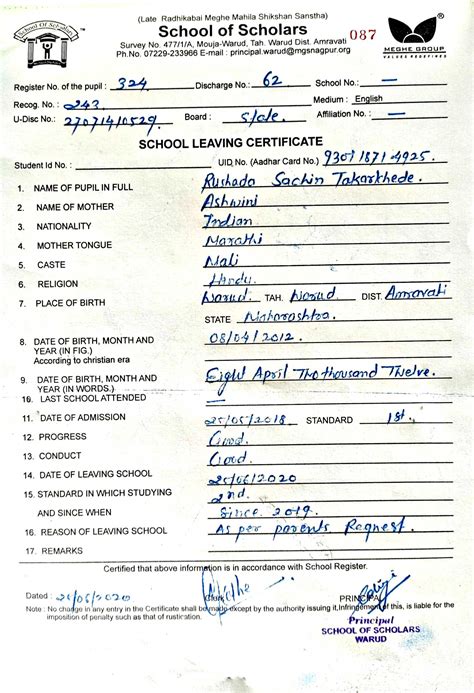 (Late Radhikabai Meghe Mahila Shikshan Sanstha)
School of Scholars
Survey No. 477/1/A, Mouja-Warud, Tah. Warud Dist. Amravati
Ph.No. 07229-233966 E-mail : principal.warud@mgsnagpur.org
087
MEGHE GROUP
VALUES REDEFINED
Register No. of the pupil : 324 Discharge No.: 62 School No.: —
Recog. No : 243 Medium : English
U-Disc No.: 27071410529 Board : State Affiliation No. : —
SCHOOL LEAVING CERTIFICATE
Student Id No. : UID No. (Aadhar Card No.) 9307 1871 4925
1. NAME OF PUPIL IN FULL Rushada Sachin Takarkhede.
2. NAME OF MOTHER Ashwini
3. NATIONALITY Indian
4. MOTHER TONGUE Marathi
5. CASTE Mali
6. RELIGION Hindu
7. PLACE OF BIRTH Warud TAH. Warud DIST. Amravati
STATE Maharashtra
8. DATE OF BIRTH, MONTH AND 08/04/2012
YEAR (IN FIG.)
According to christian era
9. DATE OF BIRTH, MONTH AND Eight April Two thousand Twelve.
YEAR (IN WORDS.)
10. LAST SCHOOL ATTENDED —
11. DATE OF ADMISSION 25/05/2018 STANDARD 1st.
12. PROGRESS Good.
13. CONDUCT Good.
14. DATE OF LEAVING SCHOOL 25/06/2020
15. STANDARD IN WHICH STUDYING 2nd.
AND SINCE WHEN Since 2019.
16. REASON OF LEAVING SCHOOL As per parents Request.
17. REMARKS
Certified that above information is in accordance with School Register.
Dated : 25/06/2020 Clerk PRINCIPAL
Note : No change in any entry in the Certificate shall be made except by the authority issuing it, Infringement of this, is liable for the
imposition of penalty such as that of rustication.
Principal
SCHOOL OF SCHOLARS
WARUD